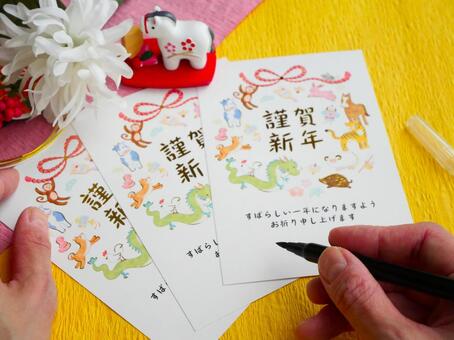 謹賀
新年
すばらしい一年になりますよう
お祈り申し上げます
謹賀
新年
すばらし
お
謹賀
新年
すば